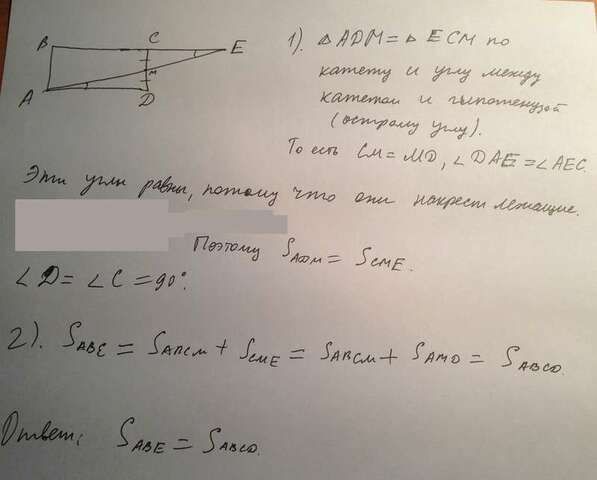 B C E
M
A D
1). △ADM = △ECM по
катету и углу между
катетом и гипотенузой
(острому углу).
То есть CM = MD, ∠DAE = ∠AEC.
Эти угли равны, потому что они накрест лежащие.
Поэтому S_ADM = S_CME.
∠D = ∠C = 90°.
2). S_ABE = S_ABCM + S_CME = S_ABCM + S_AMD = S_ABCD.
Ответ: S_ABE = S_ABCD.